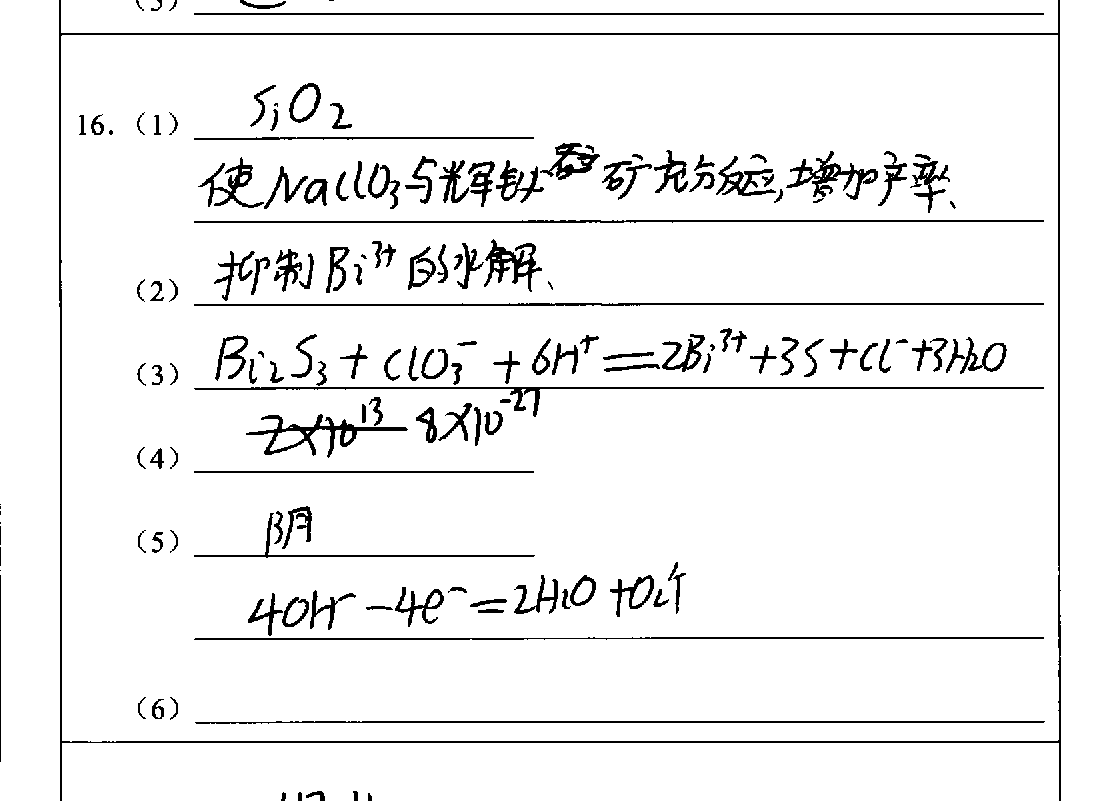 (3)
16.(1) SiO2
使NaClO3与辉铋矿充分反应,增加产率、
(2) 抑制Bi3+的水解、
(3) Bi2S3 + ClO3- + 6H+ = 2Bi3+ + 3S + Cl- + 3H2O
(4) 2×10^13 8×10^-27
(5) 阴
4OH- - 4e- = 2H2O + O2↑
(6)